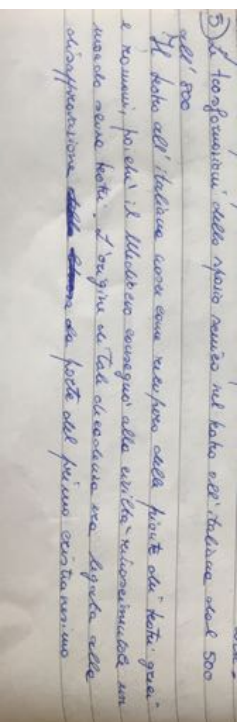 5) Le trasformazioni dello spazio scenico nel teatro all'italiana dal 500
all'800
Il teatro all'italiana nasce come recupero della pianta dei teatri greci
e romani, poiché il Medioevo consegnò alla civiltà rinascimentale un
mondo senza teatri. L'origine di tale decadenza era legata alla
disapprovazione da parte del primo cristianesimo